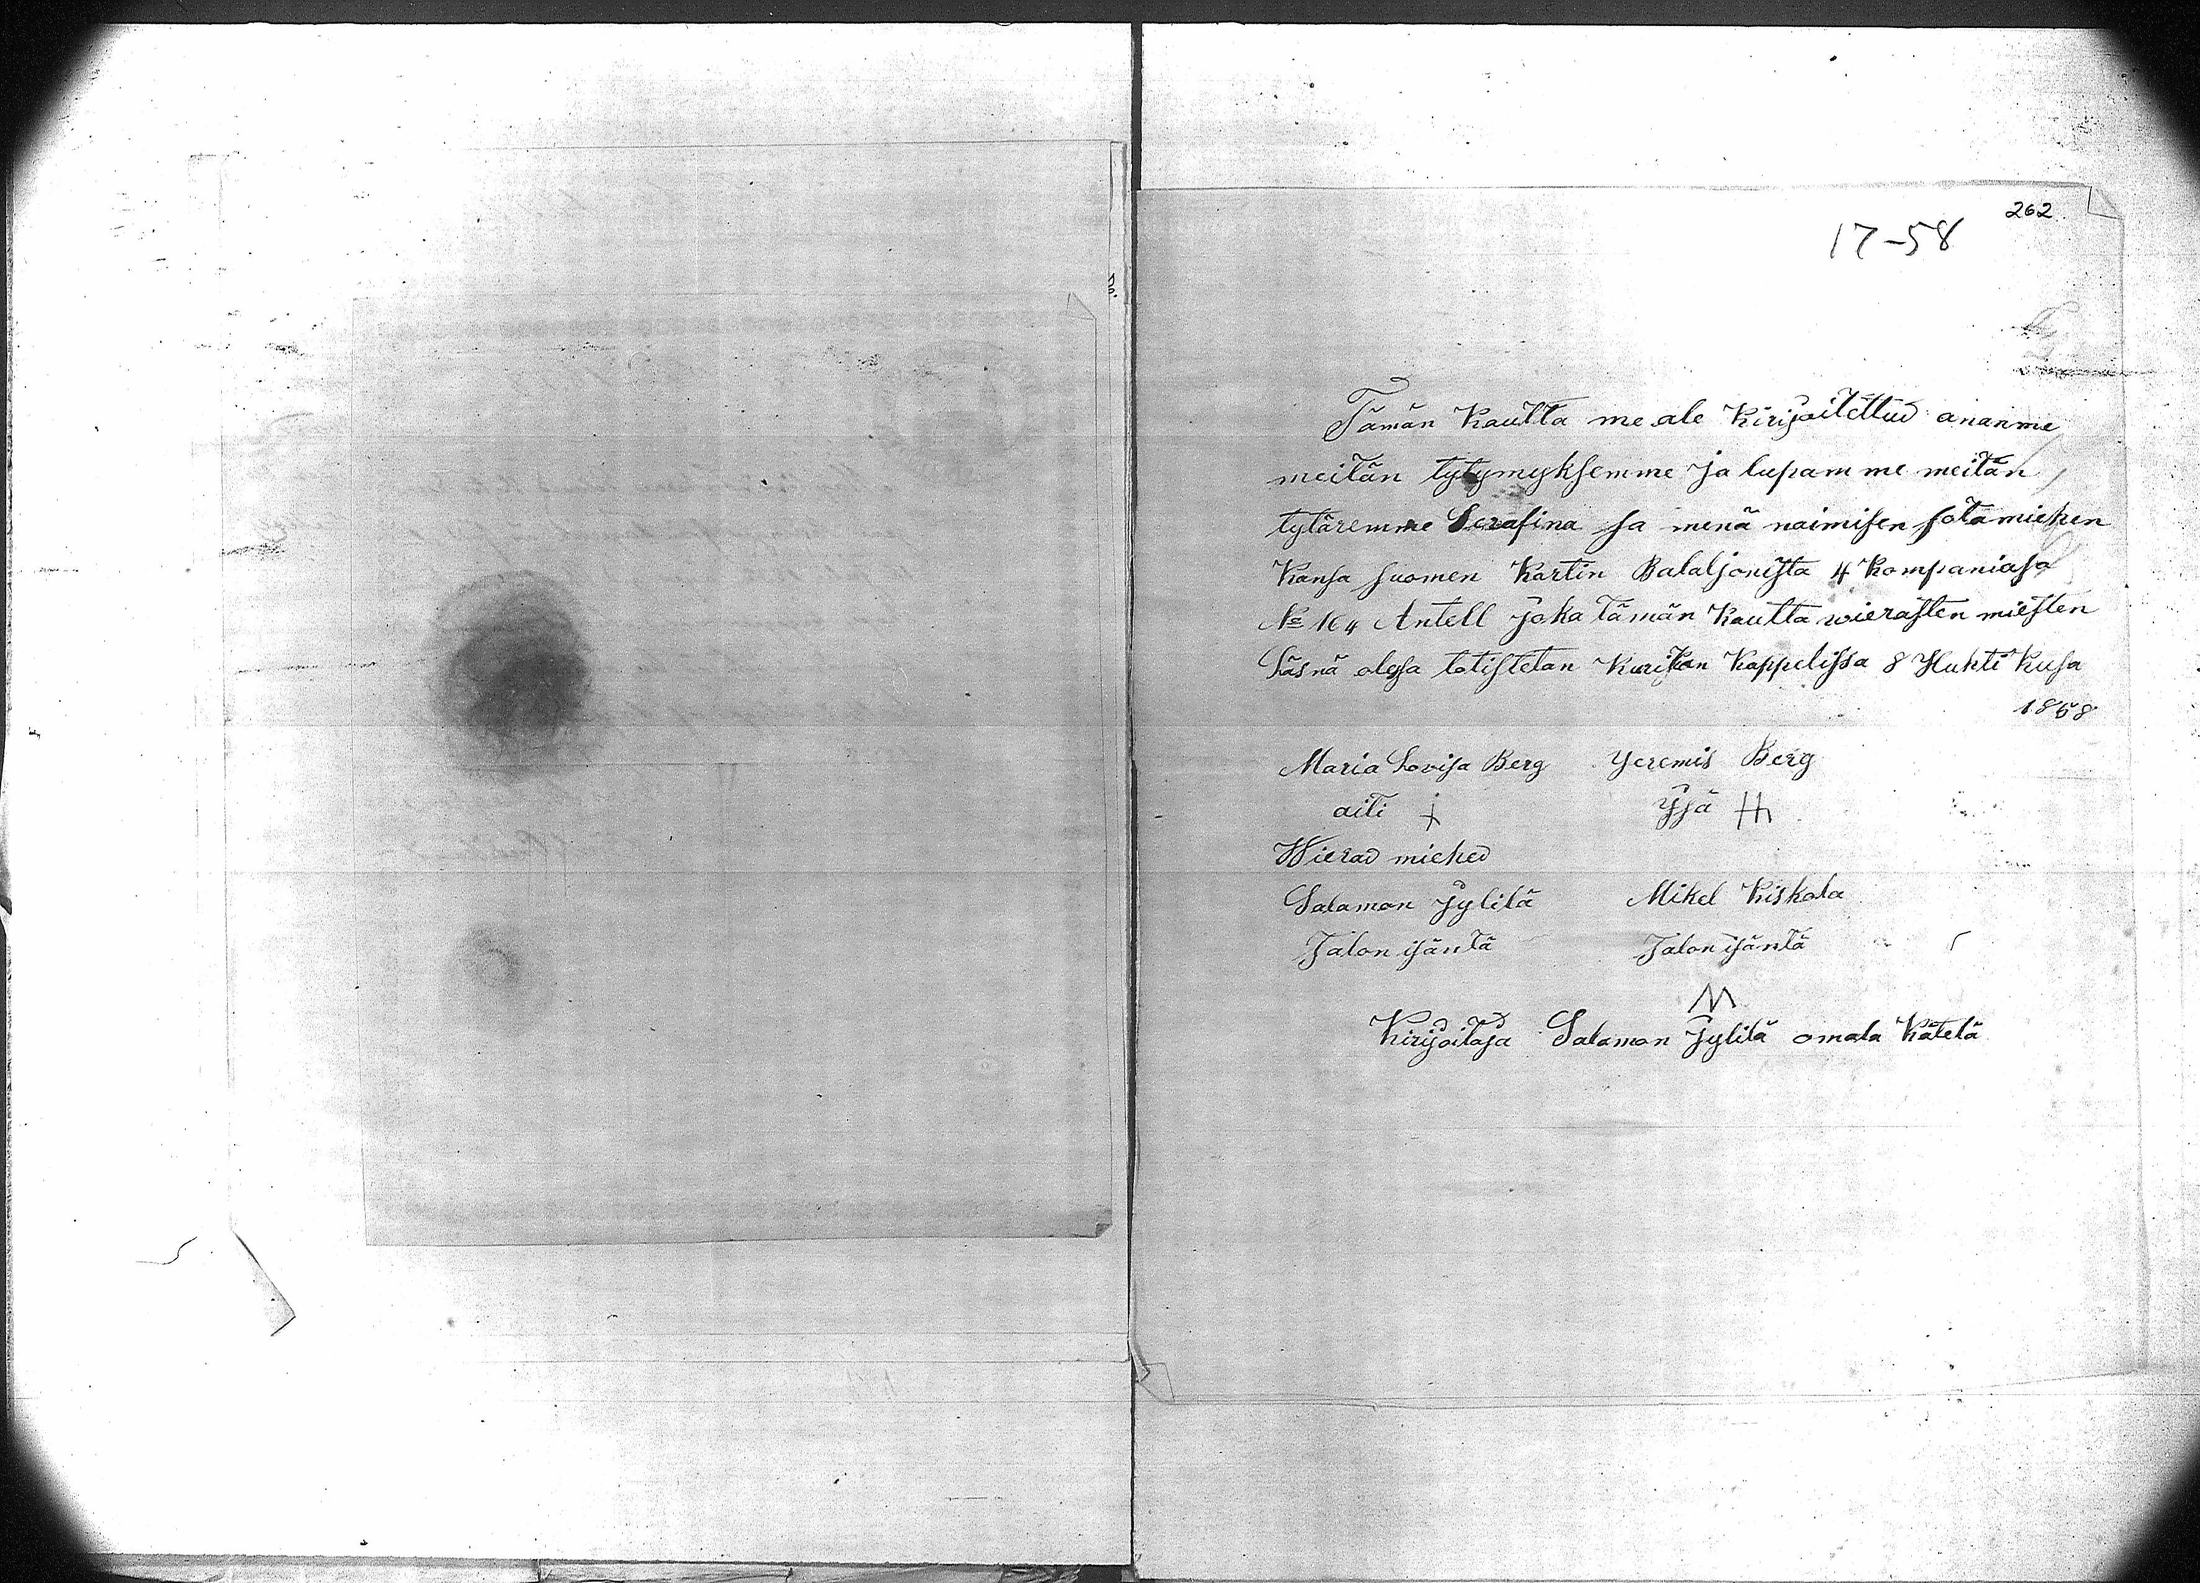 262
17-58
Tämän Kautta me ale Kirijoitettud ananme
meitän tytymyksemme ja lupam me meitän
tytäremme Serafina sa menä naimisen sotamiehen
Kansa suomen Kartin Bataljonista 4 Kompaniasa
№ 164 Antell joka tämän Kautta wierasten miesten
Läsnä olesa totistetan Kurikan Kappelissa 8 Huhti Kusa
1858
Maria Lovisa Berg Yeremis Berg
aiti Yjä
Wierad miehed
Salamon Jylilä Mikel Kiskola
Talon isäntä Talon isäntä
M
Kirijoitaja Salamon Jylilä omala Kätelä